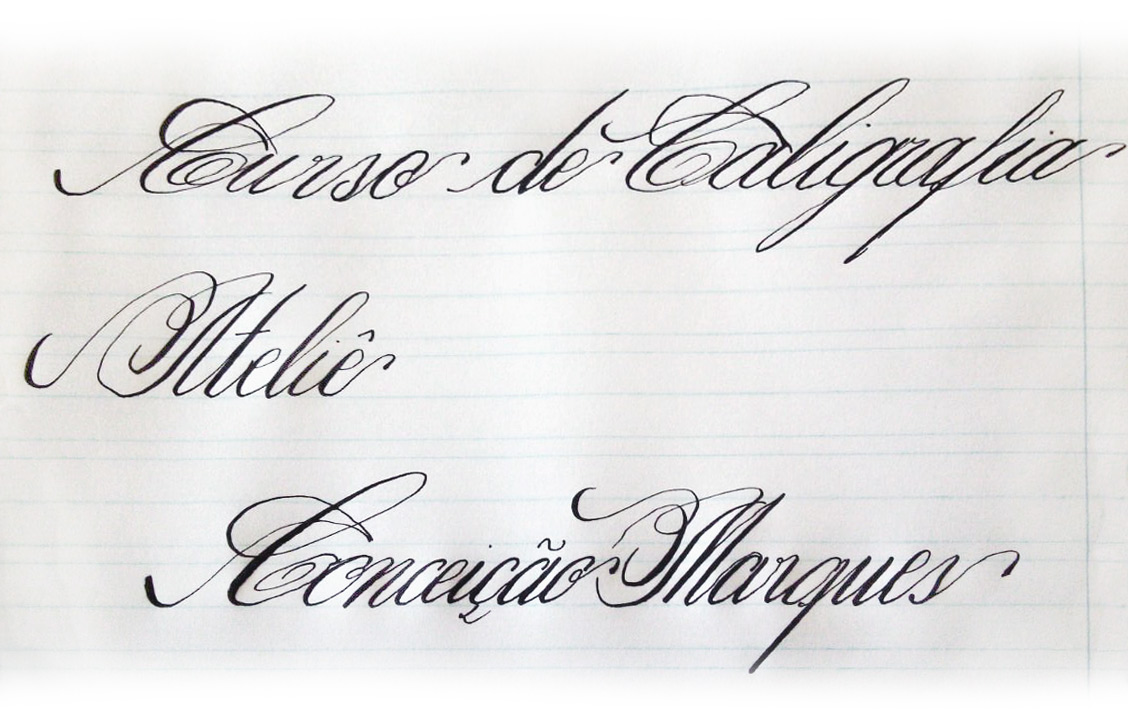 Curso de Caligrafia
Ateliê
Conceição Marques